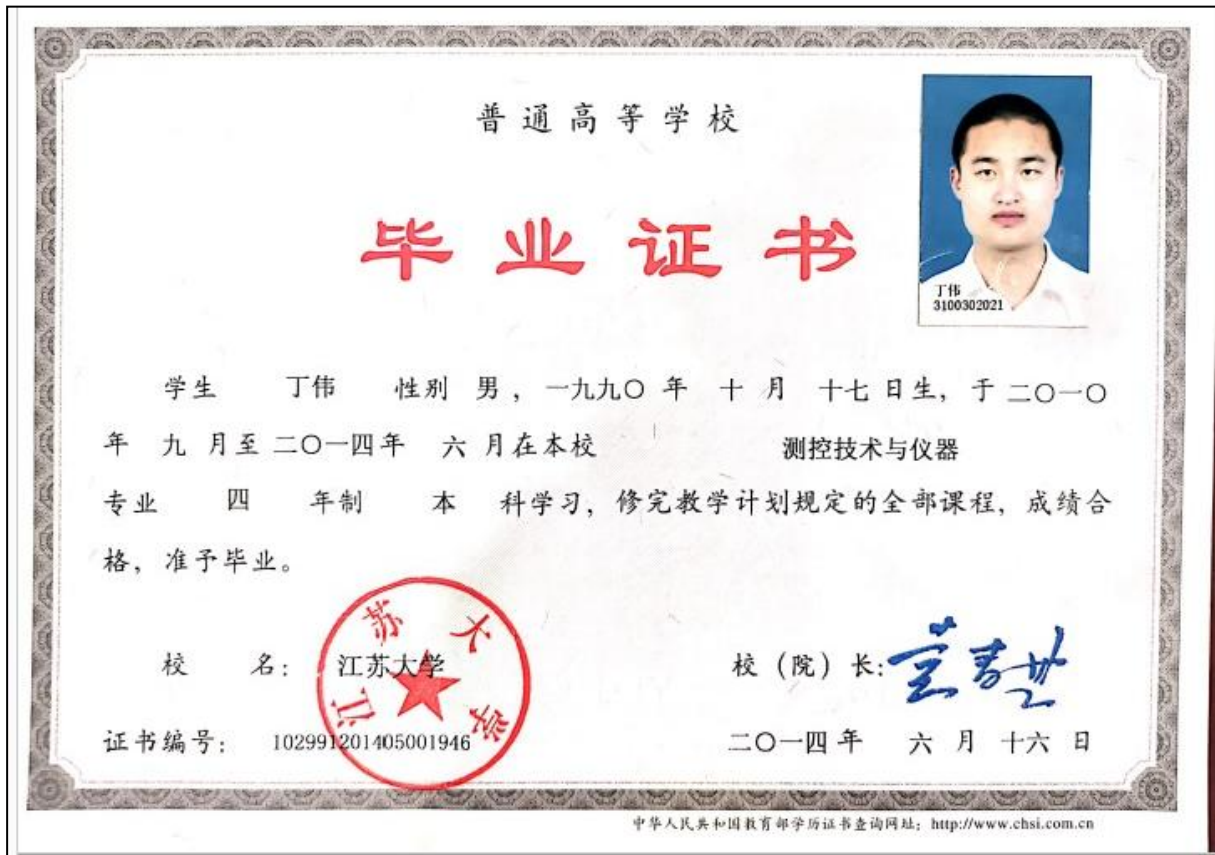 普通高等学校
毕业证书
丁伟
3100302021
学生 丁伟 性别 男，一九九〇 年 十 月 十七 日生，于 二〇一〇
年 九 月至 二〇一四 年 六 月在本校 测控技术与仪器
专业 四 年制 本 科学习，修完教学计划规定的全部课程，成绩合
格，准予毕业。
江苏大学
校 名： 江苏大学 校（院）长：
证书编号： 102991201405001946 二〇一四 年 六 月 十六 日
中华人民共和国教育部学历证书查询网址：http://www.chsi.com.cn